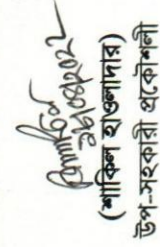 ২১/০৪/২০২২
(শাকিল হাওলাদার)
উপ-সহকারী প্রকৌশলী